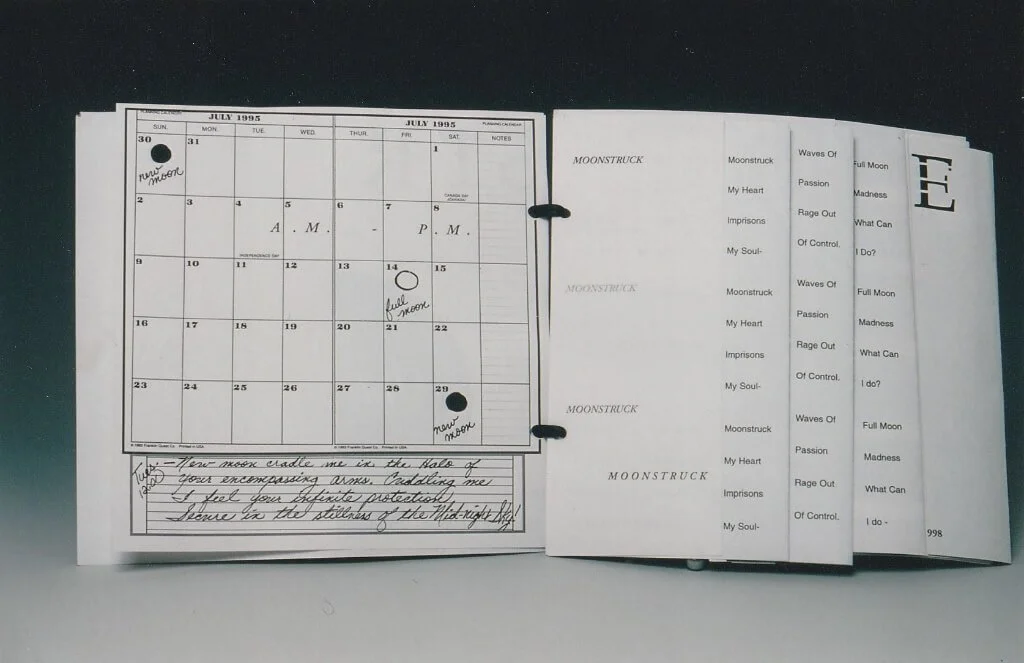 PLANNING CALENDAR
JULY 1995
JULY 1995
PLANNING CALENDAR
SUN. MON. TUE. WED. THUR. FRI. SAT. NOTES
30 31 1
new moon
CANADA DAY (CANADA)
2 3 4 5 6 7 8
A.M. - P.M.
INDEPENDENCE DAY
9 10 11 12 13 14 15
full moon
16 17 18 19 20 21 22
23 24 25 26 27 28 29
new moon
Franklin Quest Co. Printed in USA
Franklin Quest Co. Printed in USA
Tues.
- New moon cradle me in the Halo of
your encompassing arms. Cuddling me
I feel your infinite protection
Secure in the stillness of the Mid-night Sky!
MOONSTRUCK
MOONSTRUCK
MOONSTRUCK
MOONSTRUCK
Moonstruck
My Heart
Imprisons
My Soul-
Moonstruck
My Heart
Imprisons
My Soul-
Moonstruck
My Heart
Imprisons
My Soul-
Waves Of
Passion
Rage Out
Of Control.
Waves Of
Passion
Rage Out
Of Control.
Waves Of
Passion
Rage Out
Of Control.
Full Moon
Madness
What Can
I Do?
Full Moon
Madness
What Can
I do?
Full Moon
Madness
What Can
I do -
E
998